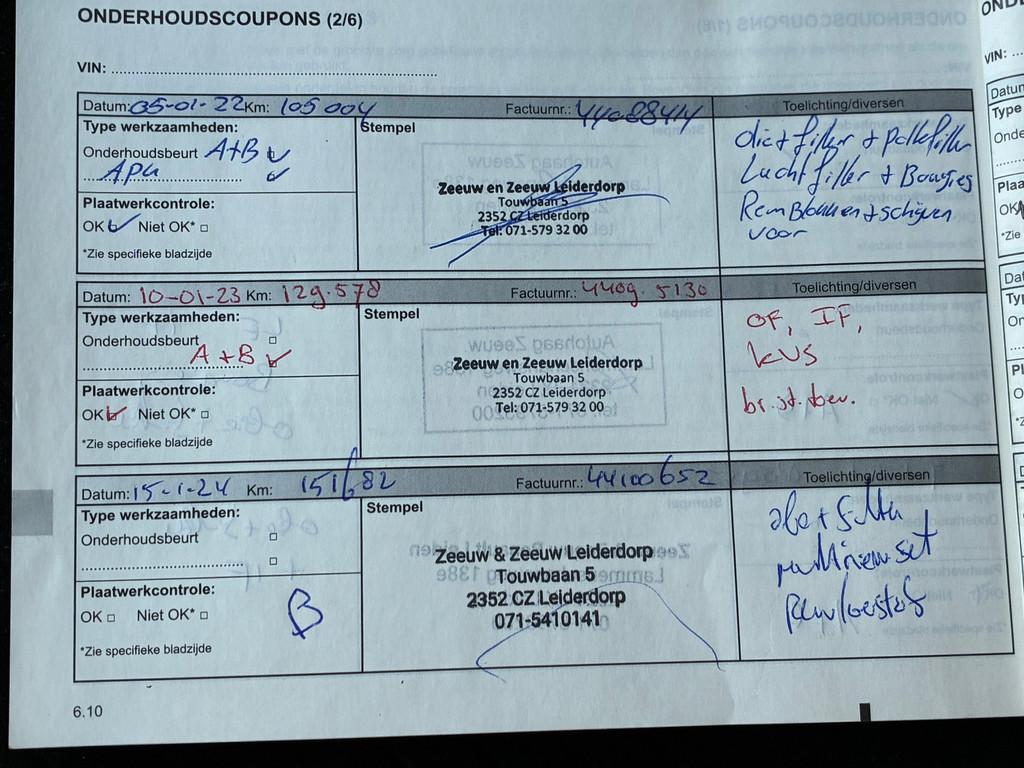 ONDERHOUDSCOUPONS (2/6)
VIN:
Datum: 05-01-22 Km: 105004 Factuurnr.: 44088414 Toelichting/diversen
Type werkzaamheden: Stempel
Onderhoudsbeurt A+B
APK
Plaatwerkcontrole:
OK Niet OK*
*Zie specifieke bladzijde
Zeeuw en Zeeuw Leiderdorp
Touwbaan 5
2352 CZ Leiderdorp
Tel: 071-579 32 00
filter +
Luchtfilter + Bougies
Remblokken + schijven
voor
Datum: 10-01-23 Km: 129.578 Factuurnr.: 4409.5130 Toelichting/diversen
Type werkzaamheden: Stempel
Onderhoudsbeurt
A+B
Plaatwerkcontrole:
OK Niet OK*
*Zie specifieke bladzijde
Zeeuw en Zeeuw Leiderdorp
Touwbaan 5
2352 CZ Leiderdorp
Tel: 071-579 32 00
OF, IF,
KVS
br.st.toev.
Datum: 15-1-24 Km: 151682 Factuurnr.: 44100652 Toelichting/diversen
Type werkzaamheden: Stempel
Onderhoudsbeurt
Plaatwerkcontrole:
OK Niet OK*
B
*Zie specifieke bladzijde
Zeeuw & Zeeuw Leiderdorp
Touwbaan 5
2352 CZ Leiderdorp
071-5410141
set
6.10